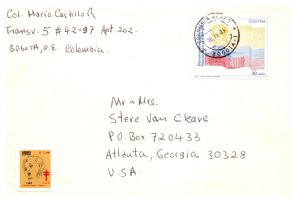 Col. Mario Castillo R
Transv. 5 # 43-97 Apt 202.
BOGOTA, D.E. Colombia
Colombia
30
Mr & Mrs.
Steve Van Cleave
P.O. Box 720433
Atlanta, Georgia 30328
U.S.A.